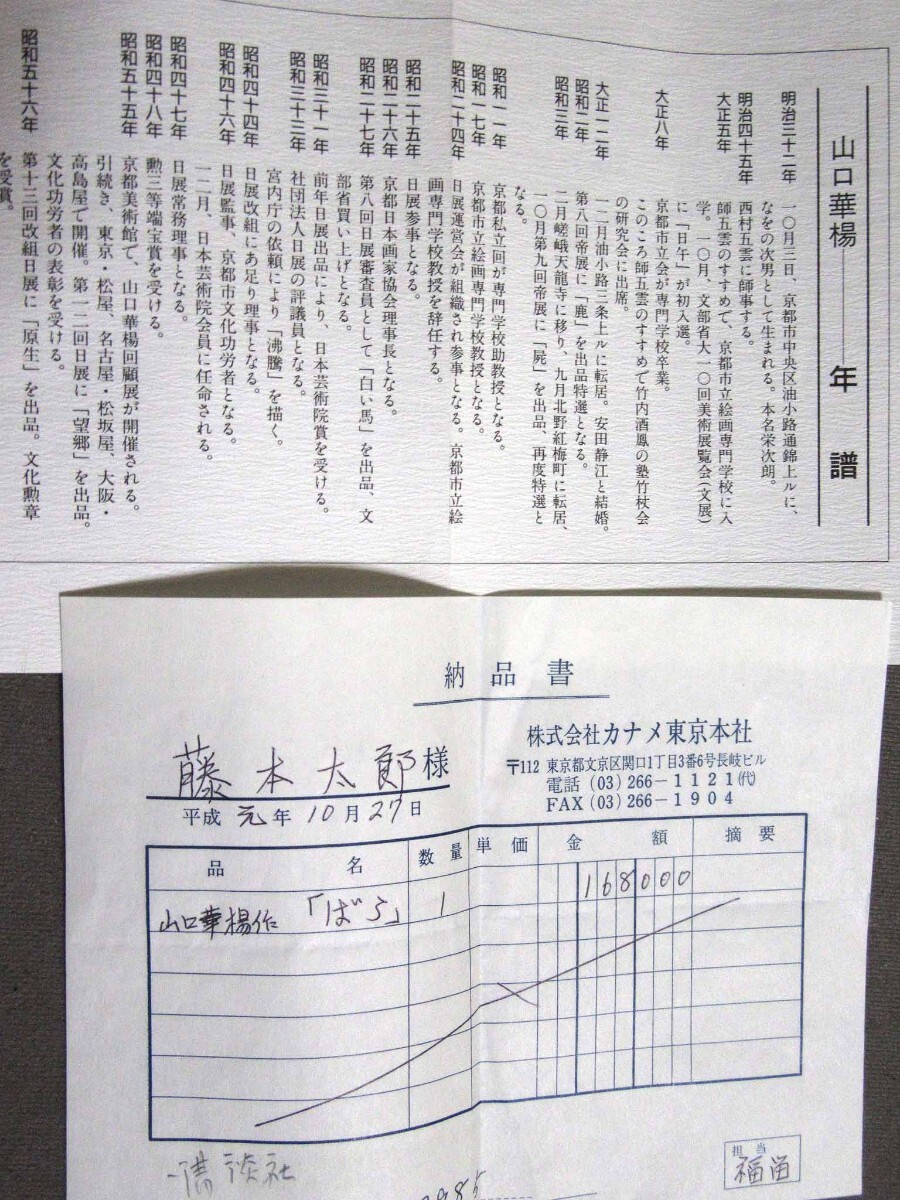 山口華楊――年譜
明治三十二年　一〇月三日、京都市中央区油小路通錦上ルに、
なをの次男として生まれる。本名栄次朗。
明治四十五年　西村五雲に師事する。
大正五年　師五雲のすすめで、京都市立絵画専門学校に入
学。一〇月、文部省大一〇回美術展覧会(文展)
に「日午」が初入選。
大正八年　京都市立会が専門学校卒業。
このころ師五雲のすすめで竹内酒鳳の塾竹杖会
の研究会に出席。
大正一二年　一二月油小路三条上ルに転居。安田静江と結婚。
昭和二年　第八回帝展に「鹿」を出品特選となる。
昭和三年　二月嵯峨天龍寺に移り、九月北野紅梅町に転居、
一〇月第九回帝展に「屍」を出品、再度特選と
なる。
昭和一一年　京都私立回が専門学校助教授となる。
昭和一七年　京都市立絵画専門学校教授となる。
昭和二十四年　日展運営会が組織され参事となる。京都市立絵
画専門学校教授を辞任する。
昭和二十五年　日展参事となる。
昭和二十六年　京都日本画家協会理事長となる。
昭和二十七年　第八回日展審査員として「白い馬」を出品、文
部省買い上げとなる。
昭和三十一年　前年日展出品により、日本芸術院賞を受ける。
昭和三十三年　社団法人日展の評議員となる。
宮内庁の依頼により「沸騰」を描く。
昭和四十四年　日展改組にあ足り理事となる。
昭和四十六年　日展監事、京都市文化功労者となる。
一二月、日本芸術院会員に任命される。
昭和四十七年　日展常務理事となる。
昭和四十八年　勲三等端宝賞を受ける。
昭和五十五年　京都美術館で、山口華楊回顧展が開催される。
引続き、東京・松屋、名古屋・松坂屋、大阪・
高島屋で開催。第一二回日展に「望郷」を出品。
文化功労者の表彰を受ける。
昭和五十六年　第十三回改組日展に「原生」を出品。文化勲章
を受賞。
納品書
藤本太郎様
平成元年10月27日
株式会社カナメ東京本社
〒112 東京都文京区関口1丁目3番6号長岐ビル
電話 (03) 266-1121(代)
FAX (03) 266-1904
品名 数量 単価 金額 摘要
山口華楊作「ばら」 1 168000
講談社
担当